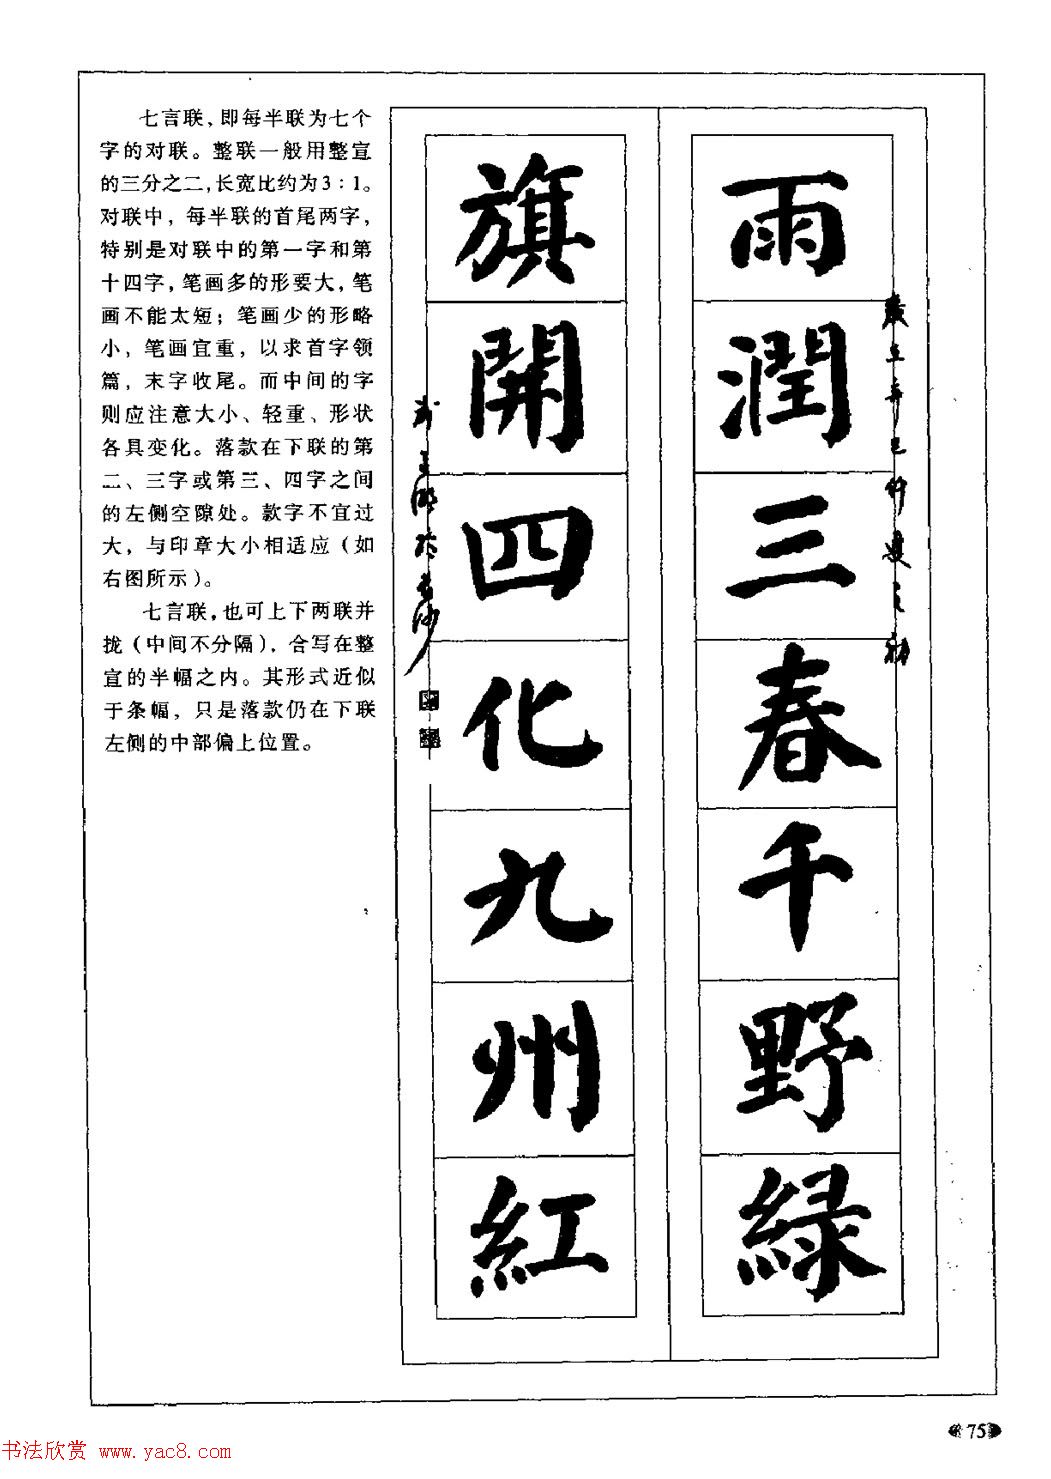 七言联，即每半联为七个
字的对联。整联一般用整宣
的三分之二，长宽比约为3：1。
对联中，每半联的首尾两字，
特别是对联中的第一字和第
十四字，笔画多的形要大，笔
画不能太短；笔画少的形略
小，笔画宜重，以求首字领
篇，末字收尾。而中间的字
则应注意大小、轻重、形状
各具变化。落款在下联的第
二、三字或第三、四字之间
的左侧空隙处。款字不宜过
大，与印章大小相适应（如
右图所示）。
七言联，也可上下两联并
拢（中间不分隔），合写在整
宣的半幅之内。其形式近似
于条幅，只是落款仍在下联
左侧的中部偏上位置。
雨潤三春千野綠
旗開四化九州紅
75
书法欣赏 www.yac8.com